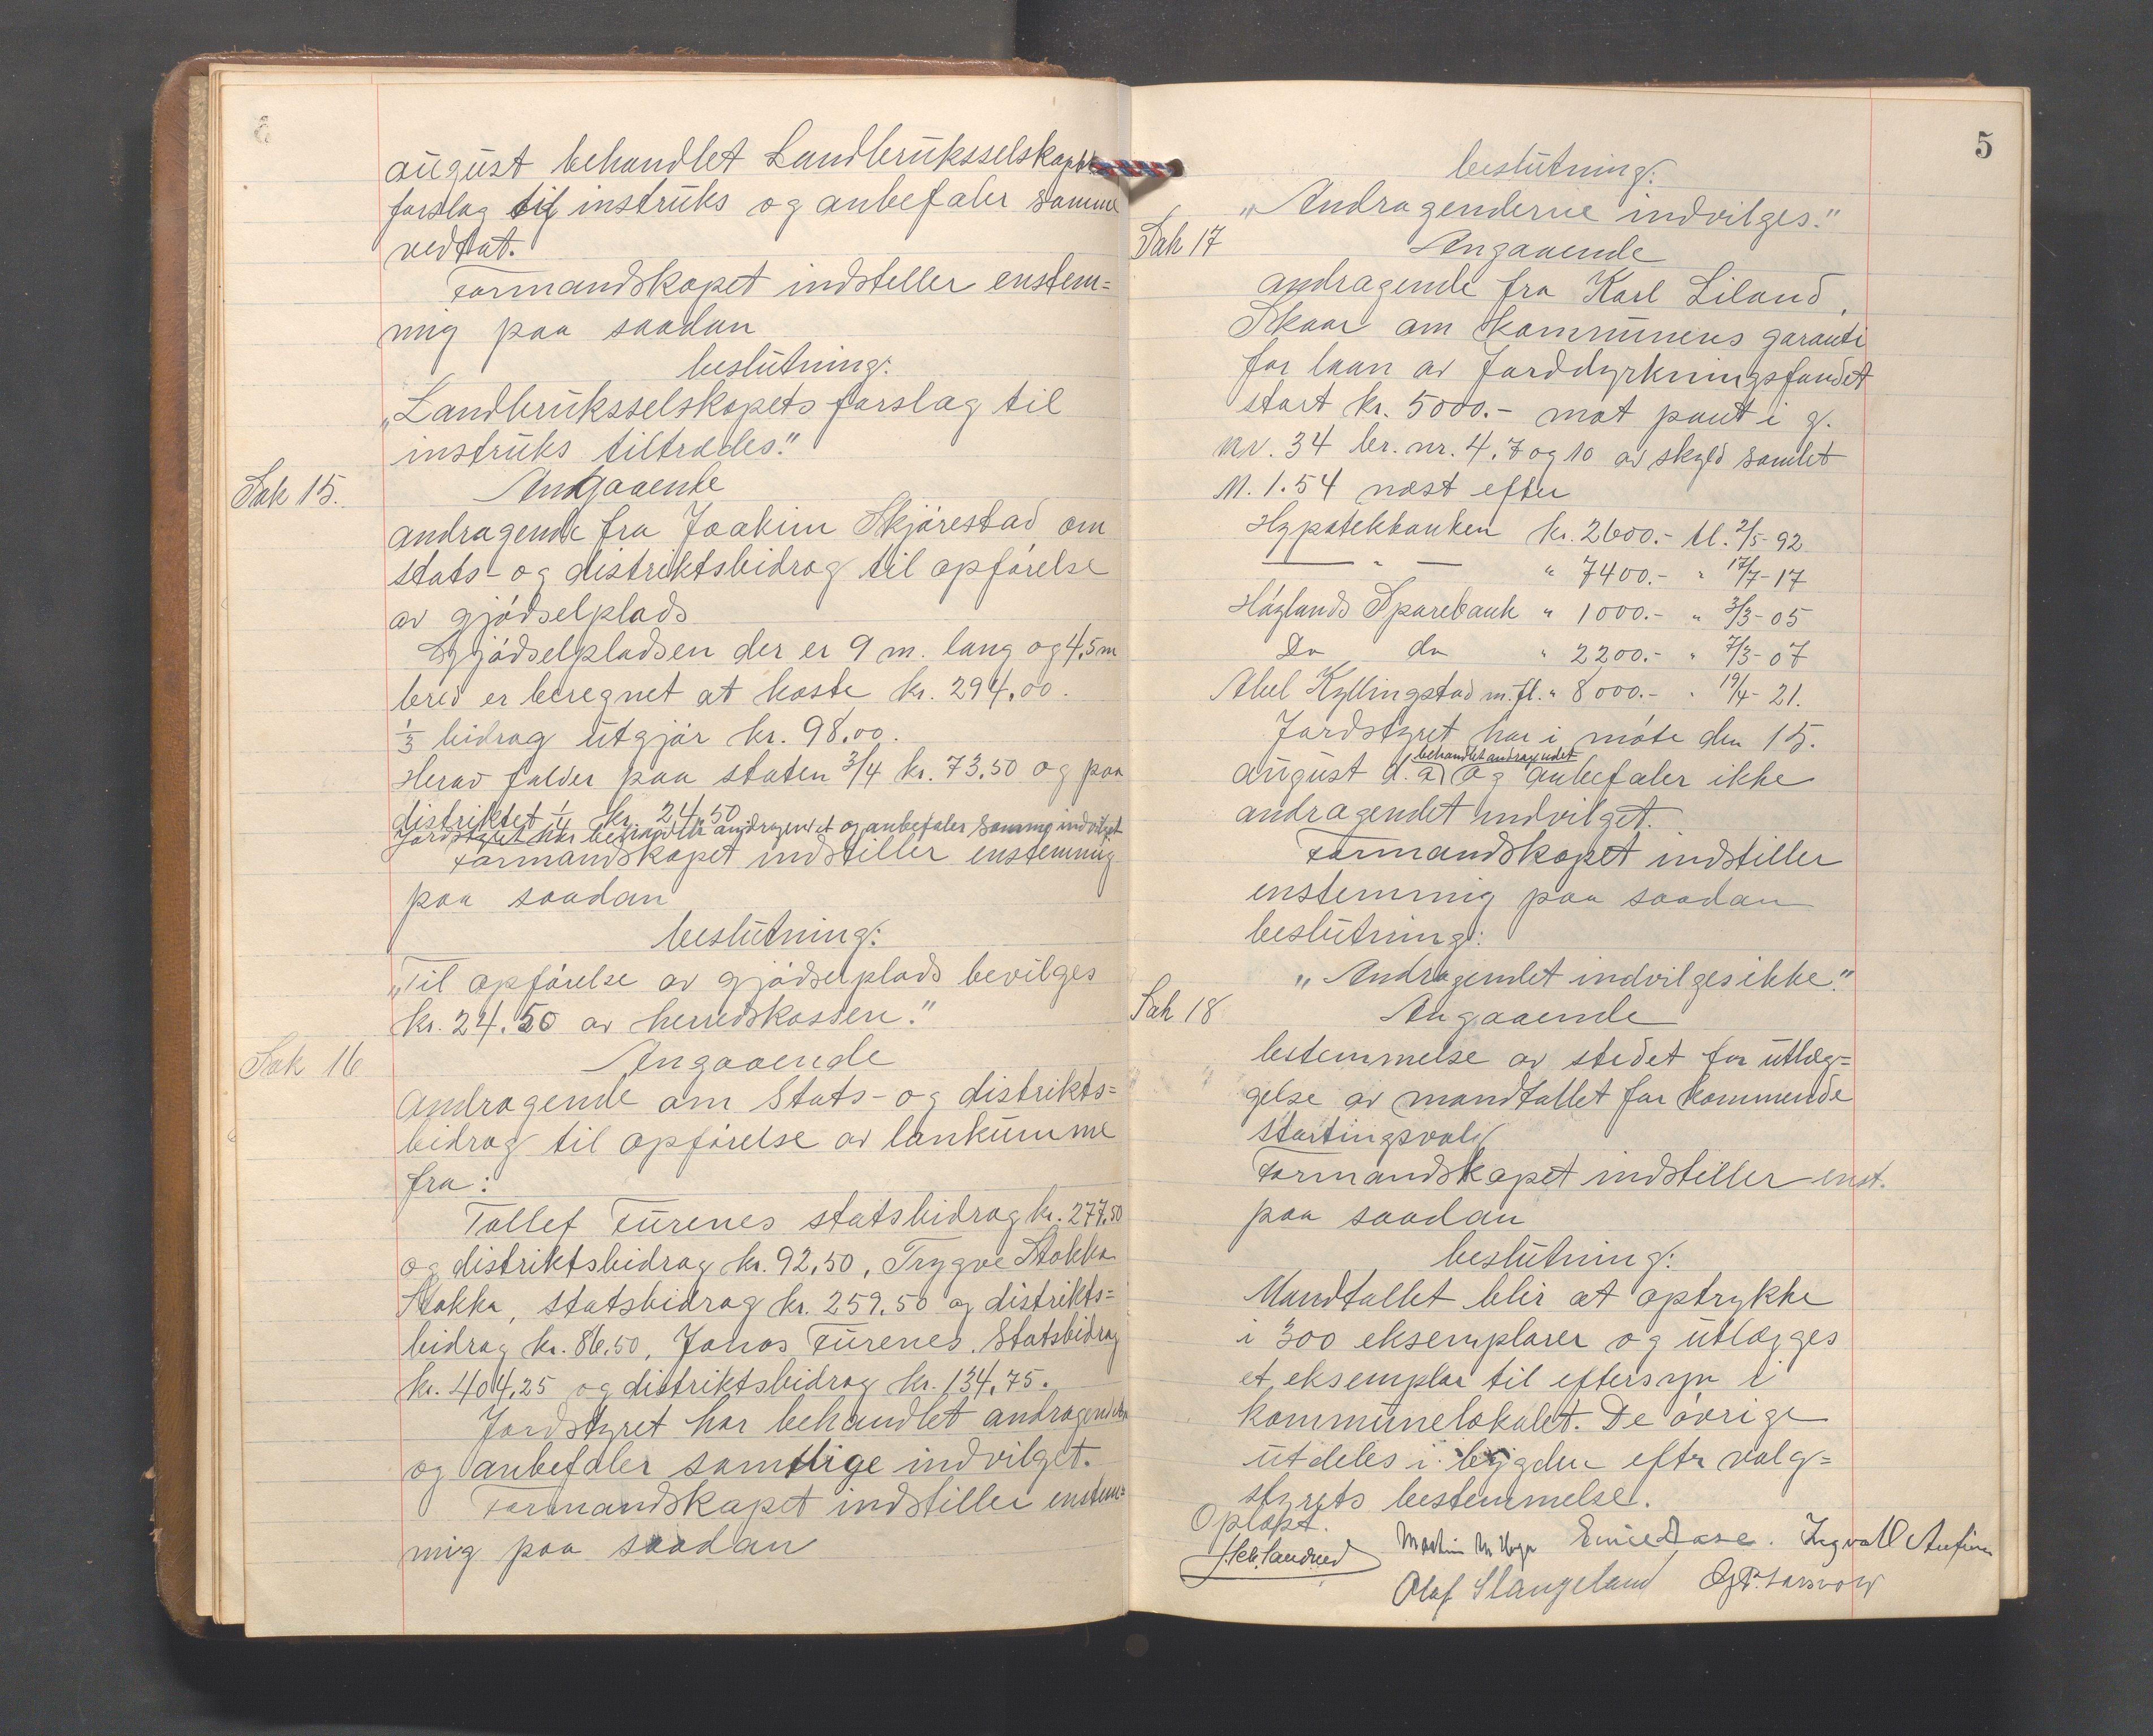 august behandlet Landbruksselskapets
forslag til instruks og anbefaler samme
vedtat.
Formandskapet indstiller enstem=
mig paa saadan
beslutning:
"Landbruksselskapets forslag til
instruks tiltrædes."
Sak 15.
Angaaende
andragende fra Joakim Skjørestad om
stats- og distriktsbidrag til opførelse
av gjødselplads
Gjødselpladsen der er 9 m. lang og 4,5 m
bred er beregnet at koste kr. 294,00.
1/3 bidrag utgjør kr. 98,00.
Herav falder paa staten 3/4 kr. 73.50 og paa
distriktet 1/4 kr. 24.50
Jordstyret har behandlet andragendet og anbefaler samme indvilget
Formandskapet indstiller enstemmig
paa saadan
beslutning:
"Til opførelse av gjødselplads bevilges
kr. 24.50 av herredskassen."
Sak 16
Angaaende
andragende om Stats- og distrikts=
bidrag til opførelse av lankumme
fra:
Tollef Furenes statsbidrag kr. 277.50
og distriktsbidrag kr. 92,50, Trygve Stokka
Stokka, statsbidrag kr. 259.50 og distrikts=
bidrag kr. 86.50, Jonas Furenes. Statsbidrag
kr. 404,25 og distriktsbidrag kr. 134,75.
Jordstyret har behandlet andragenderne
og anbefaler samtlige indvilget.
Formandskapet indstiller enstem=
mig paa saadan
5
beslutning:
"Andragenderne indvilges."
Sak 17
Angaaende
andragende fra Karl Liland,
Skaar om kommunens garanti
for laan av Jorddyrkningsfondet
stort kr. 5000.- mot pant i g.
nr. 34 br. nr. 4, 7 og 10 av skyld samlet
M. 1.54 næst efter
Hypotekbanken kr. 2600.- tl. 2/5-92
— " — " 7400.- " 17/7-17
Høylands Sparebank " 1000.- " 3/3-05
Do do " 2200.- " 7/3-07
Abel Kyllingstad m.fl. " 8000.- " 19/4-21.
Jordstyret har i møte den 15.
august d. a. behandlet andragendet og anbefaler ikke
andragendet indvilget.
Formandskapet indstiller
enstemmig paa saadan
beslutning:
"Andragendet indvilges ikke."
Sak 18
Angaaende
bestemmelse av stedet for utlæg=
gelse av mandtallet for kommende
stortingsvalg
Formandskapet indstiller enst.
paa saadan
beslutning:
Mandtallet blir at optrykke
i 300 eksemplarer og utlægges
et eksemplar til eftersyn i
kommunelokalet. De øvrige
utdeles i bygden efter valg=
styrets bestemmelse.
Oplæst.
Olaf Slangeland